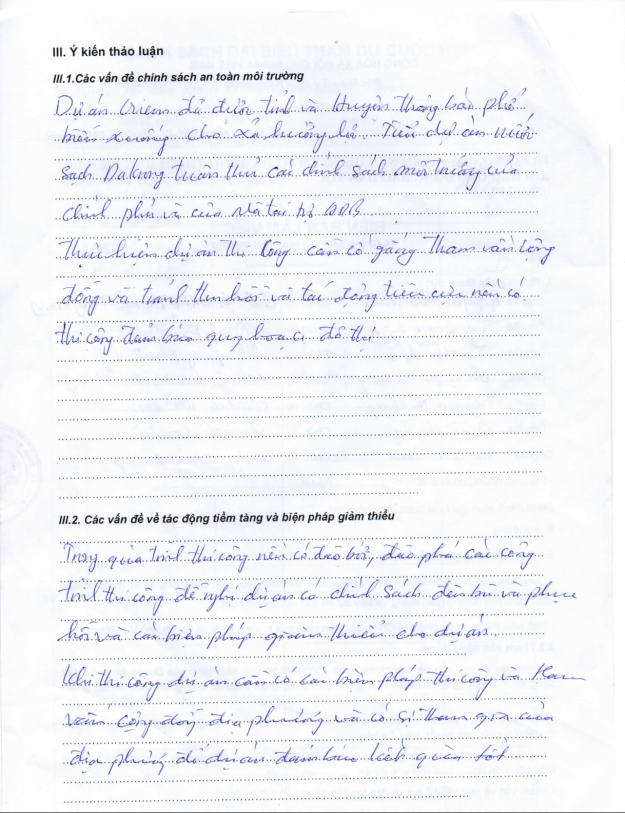 III. Ý kiến thảo luận
III.1.Các vấn đề chính sách an toàn môi trường
Dự án đã được tỉnh và Huyện thông báo phổ
biến xuống cho xã hưởng lợi. Tiểu dự án nước
sạch Dakrong tuân thủ các chính sách môi trường của
chính phủ và của nhà tài trợ ADB
Thực hiện dự án thi công cần cố gắng tham vấn cộng
đồng và tránh thu hồi và tác động tiêu cực nếu có
thi công đảm bảo quy hoạch đô thị
III.2. Các vấn đề về tác động tiềm tàng và biện pháp giảm thiểu
Trong quá trình thi công nếu có đào bới, đào phá các công
trình thi công đề nghị dự án có chính sách đền bù và phục
hồi và có biện pháp giảm thiểu cho dự án.
Khi thi công dự án cần có các biện pháp thi công và tham
vấn cộng đồng địa phương và có sự tham gia của
địa phương để dự án đảm bảo kết quả tốt